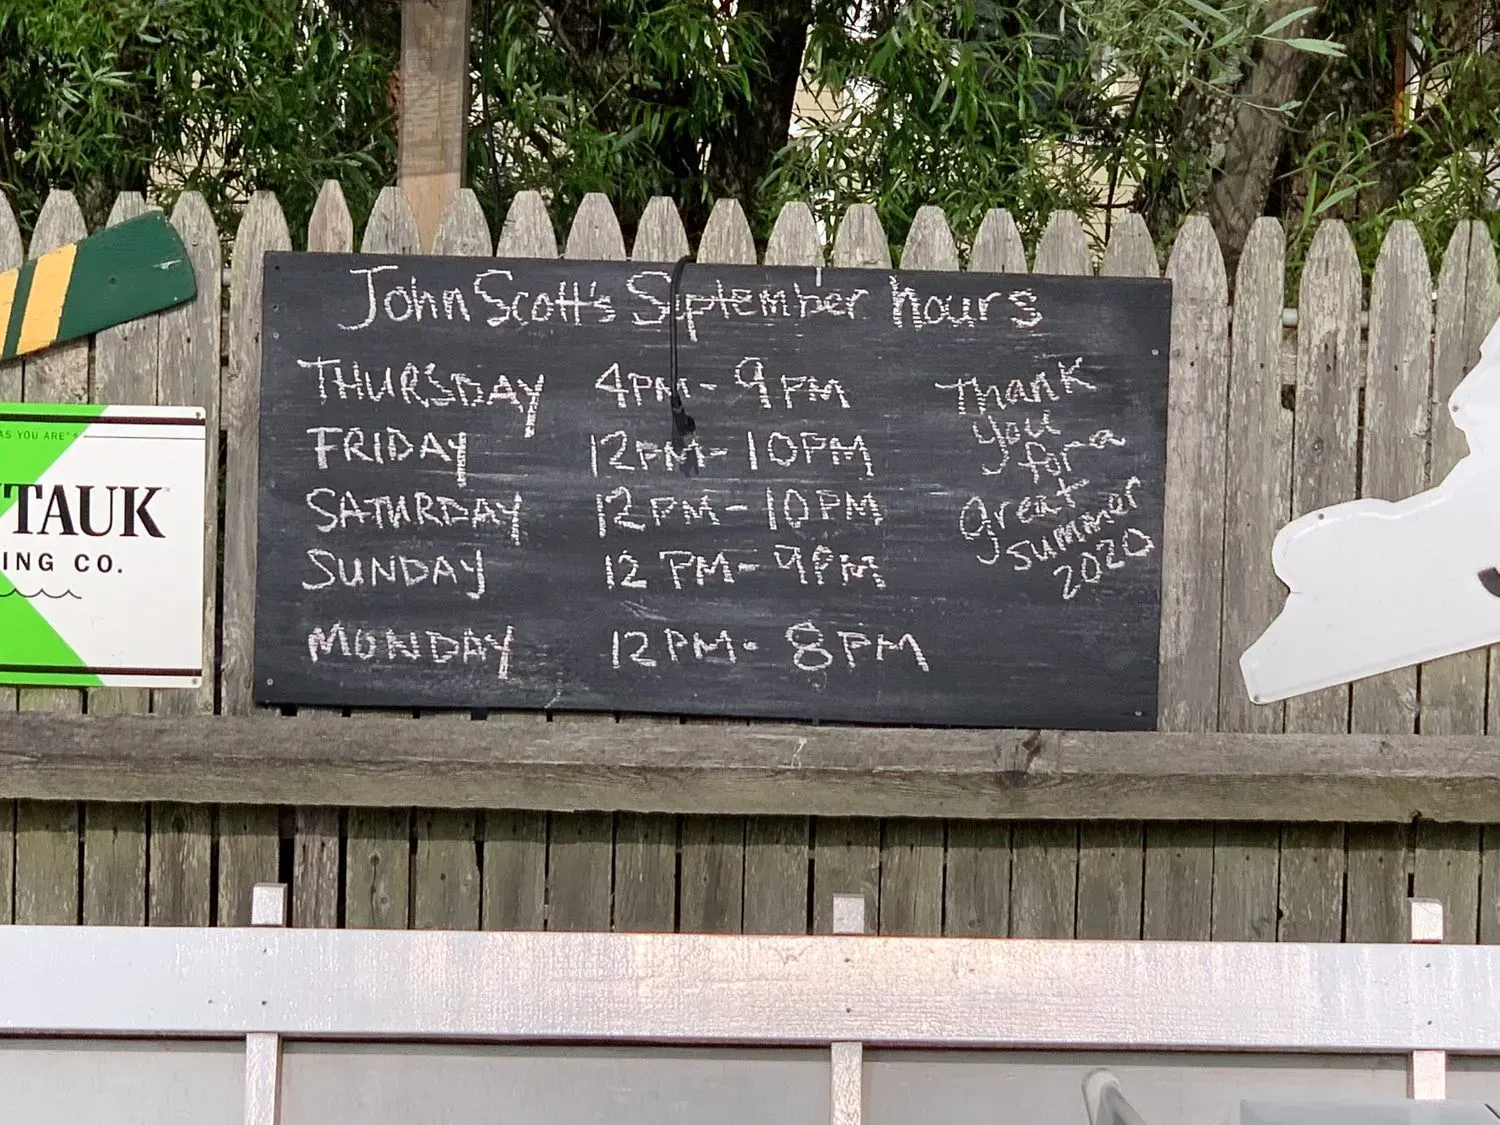 John Scott's September hours
THURSDAY 4PM - 9PM
FRIDAY 12PM - 10PM
SATURDAY 12PM - 10PM
SUNDAY 12 PM - 9PM
MONDAY 12PM - 8PM
Thank
you
for a
great
summer
2020
AS YOU ARE
TAUK
ING CO.